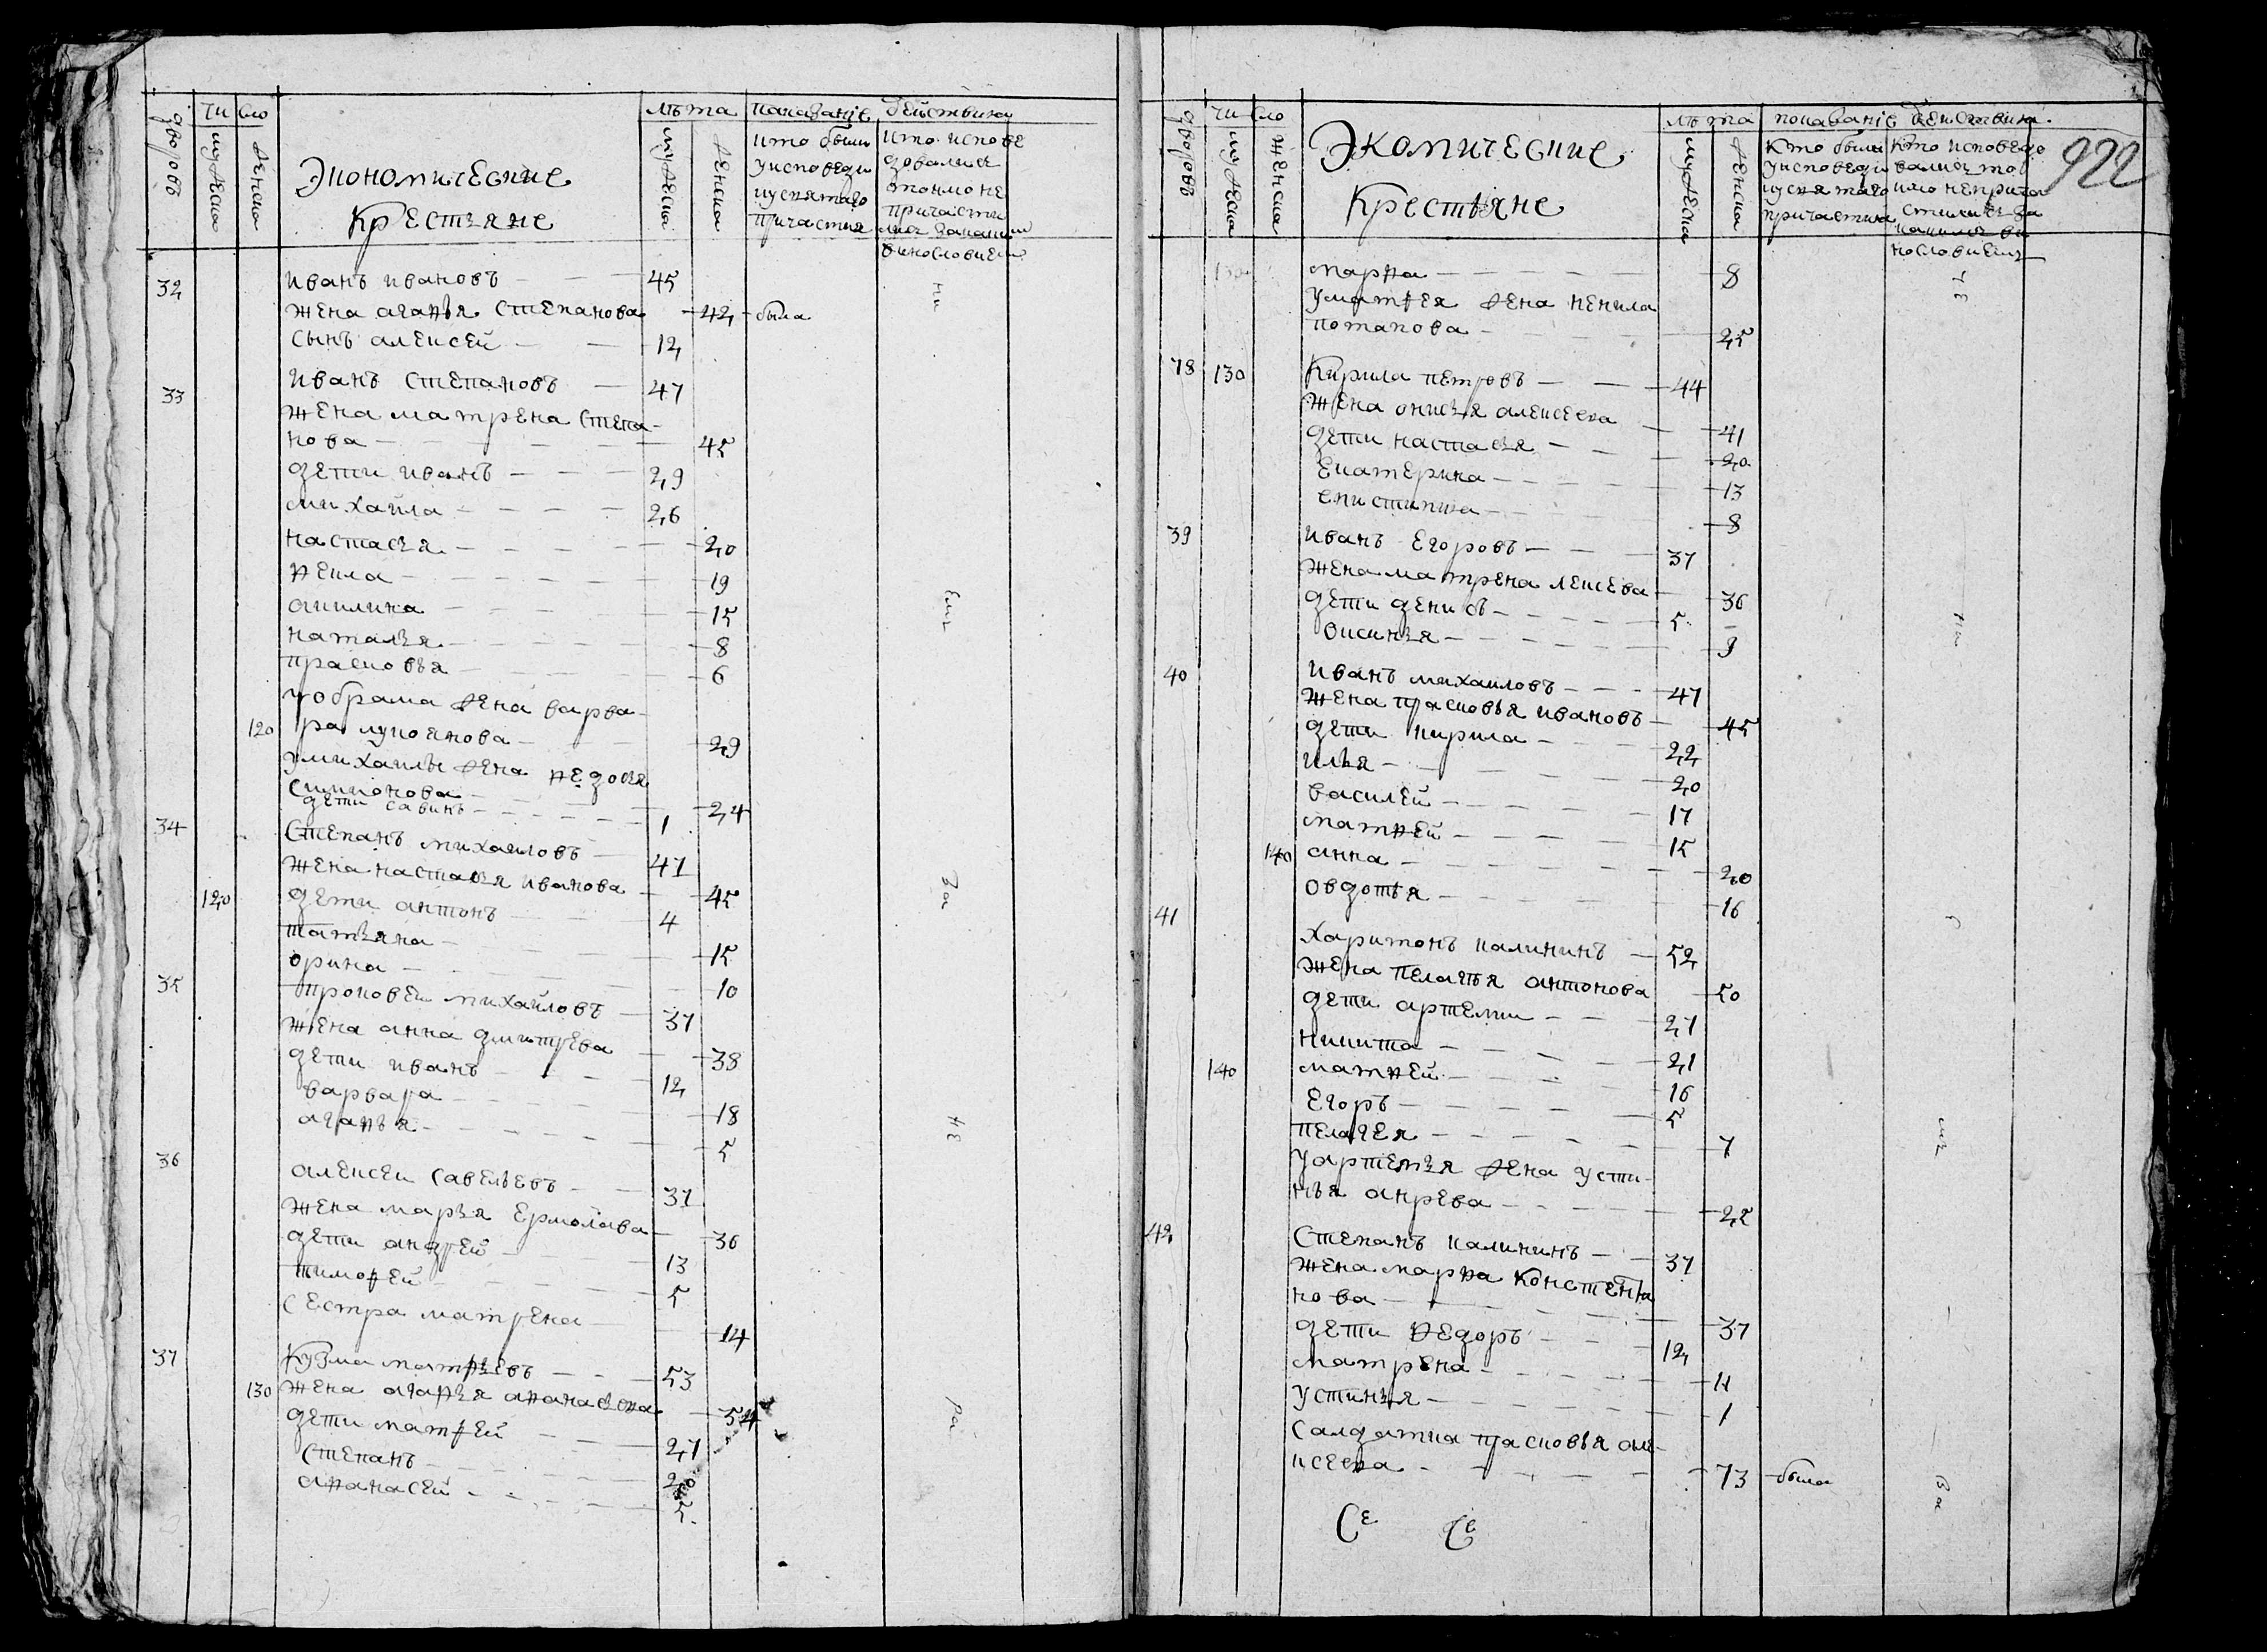 дворовъ
число
мужеска
женска
Экономические
Крестьяне
лѣта
мужеска
женска
показаніе действина
кто были
у исповеди
и у святаго
причастия
кто испове
довалися
токмо не
причасти
32 иванъ ивановъ — 45
жена агафья степанова — 42 — была
сынъ алексей — 12
33 иванъ степановъ — 47
жена матрена степа-
нова — 45
дети иванъ — 29
михаила — 26
настасья — 20
фекла — 19
акилина — 15
наталья — 8
прасковья — 6
жена варва-
120 ра лукоянова — 29
у михаилы жена федосья
симионова — 24
дети савинъ — 1
34 степанъ михаиловъ — 47
жена настасья иванова — 45
120 дети антонъ — 4
татьяна — 15
орина — 10
35 прокофеи михайловъ — 37
жена анна дмитрева — 38
дети иванъ — 12
варвара — 18
агафья — 5
36 алексеи савельевъ — 37
жена марья ермолава — 36
дети андрей — 13
тимофей — 5
сестра матрена — 14
37 кузма матфеевъ — 53
130 жена агафья афанасева — 54
дети матфей — 27
степанъ — 20
афанасей — 5
ни
емъ
за
не
ра
дворовъ
число
мужеска
женска
Экомические
Крестьяне
лѣта
мужеска
женска
показаніе действина
922
кто были
у исповеди
и у святаго
причастия
кто исповедо
вались то
кмо неприча
стились за
каким ви
нословиемъ
марфа — 8
у матфея жена ненила
потапова — 25
78 130 Кирила петровъ — 44
жена онисья алексеева — 41
дети настасья — 20
екатерина — 13
39 иванъ егоровъ — 37
жена матрена лексева — 36
дети денисъ — 5
оксинья — 9
40 иванъ михаиловъ — 47
жена прасковья ивановъ — 45
дети кирила — 22
илья — 20
василей — 17
матфей — 15
140 анна — 20
овдотья — 16
41 харитонъ калининъ — 52
жена пелагья антонова — 50
дети артеми — 27
никита — 21
140 матфей — 16
егоръ — 5
пелагея — 7
у артемья жена усти-
нья анрева — 25
42 степанъ калининъ — 37
жена марфа констента
нова — 37
дети федоръ — 12
матрена — 11
устинья — 1
салдатка прасковья але-
ксеева — 73 — была